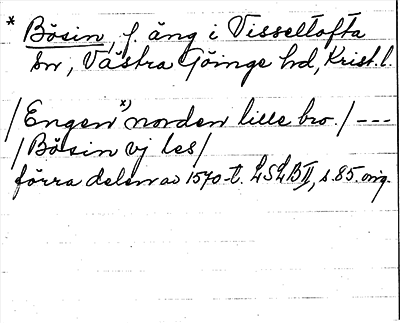 * Bösin, f. äng i Visseltofta
sn, Västra Göinge hd, Krist. l.
/Engen* norden lille bro./ ---
/Bösin vj les/
förra delen av 1570-t. LSLB II, s. 85. orig.